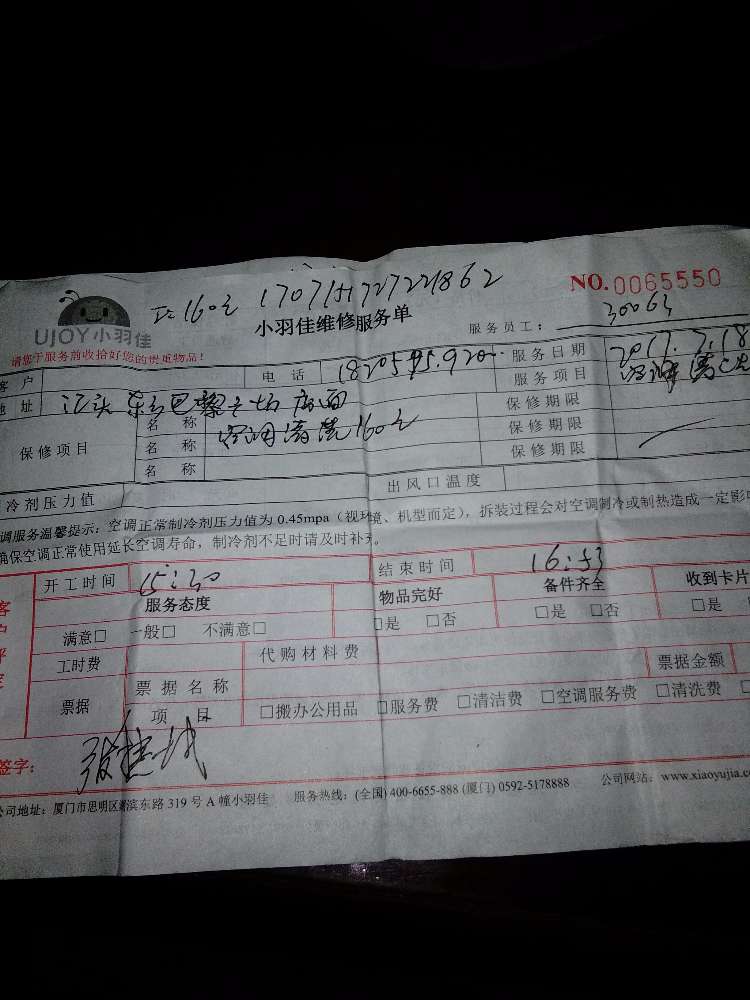 160元 17071
NO.0065550
UJOY小羽佳
小羽佳维修服务单
服务员工: 30063
请您于服务前收拾好您的贵重物品!
客 户 电 话 服务日期 2017.7.18
地址 服务项目
保修项目 名 称 160元 保修期限
名 称 保修期限
名 称 保修期限
冷剂压力值 出风口温度
调服务温馨提示: 空调正常制冷剂压力值为 0.45mpa (视环境、机型而定), 拆装过程会对空调制冷或制热造成一定影响
确保空调正常使用延长空调寿命, 制冷剂不足时请及时补充。
开工时间 结束时间
服务态度 物品完好 备件齐全 收到卡片
满意□ 一般□ 不满意□ □是 □否 □是 □否 □是
工时费 代购材料费
票据 票 据 名 称 票据金额
项 目 □搬办公用品 □服务费 □清洁费 □空调服务费 □清洗费
签字:
公司地址: 厦门市思明区湖滨东路 319 号 A 幢小羽佳 服务热线: (全国) 400-6655-888 (厦门) 0592-5178888 公司网站: www.xiaoyujia